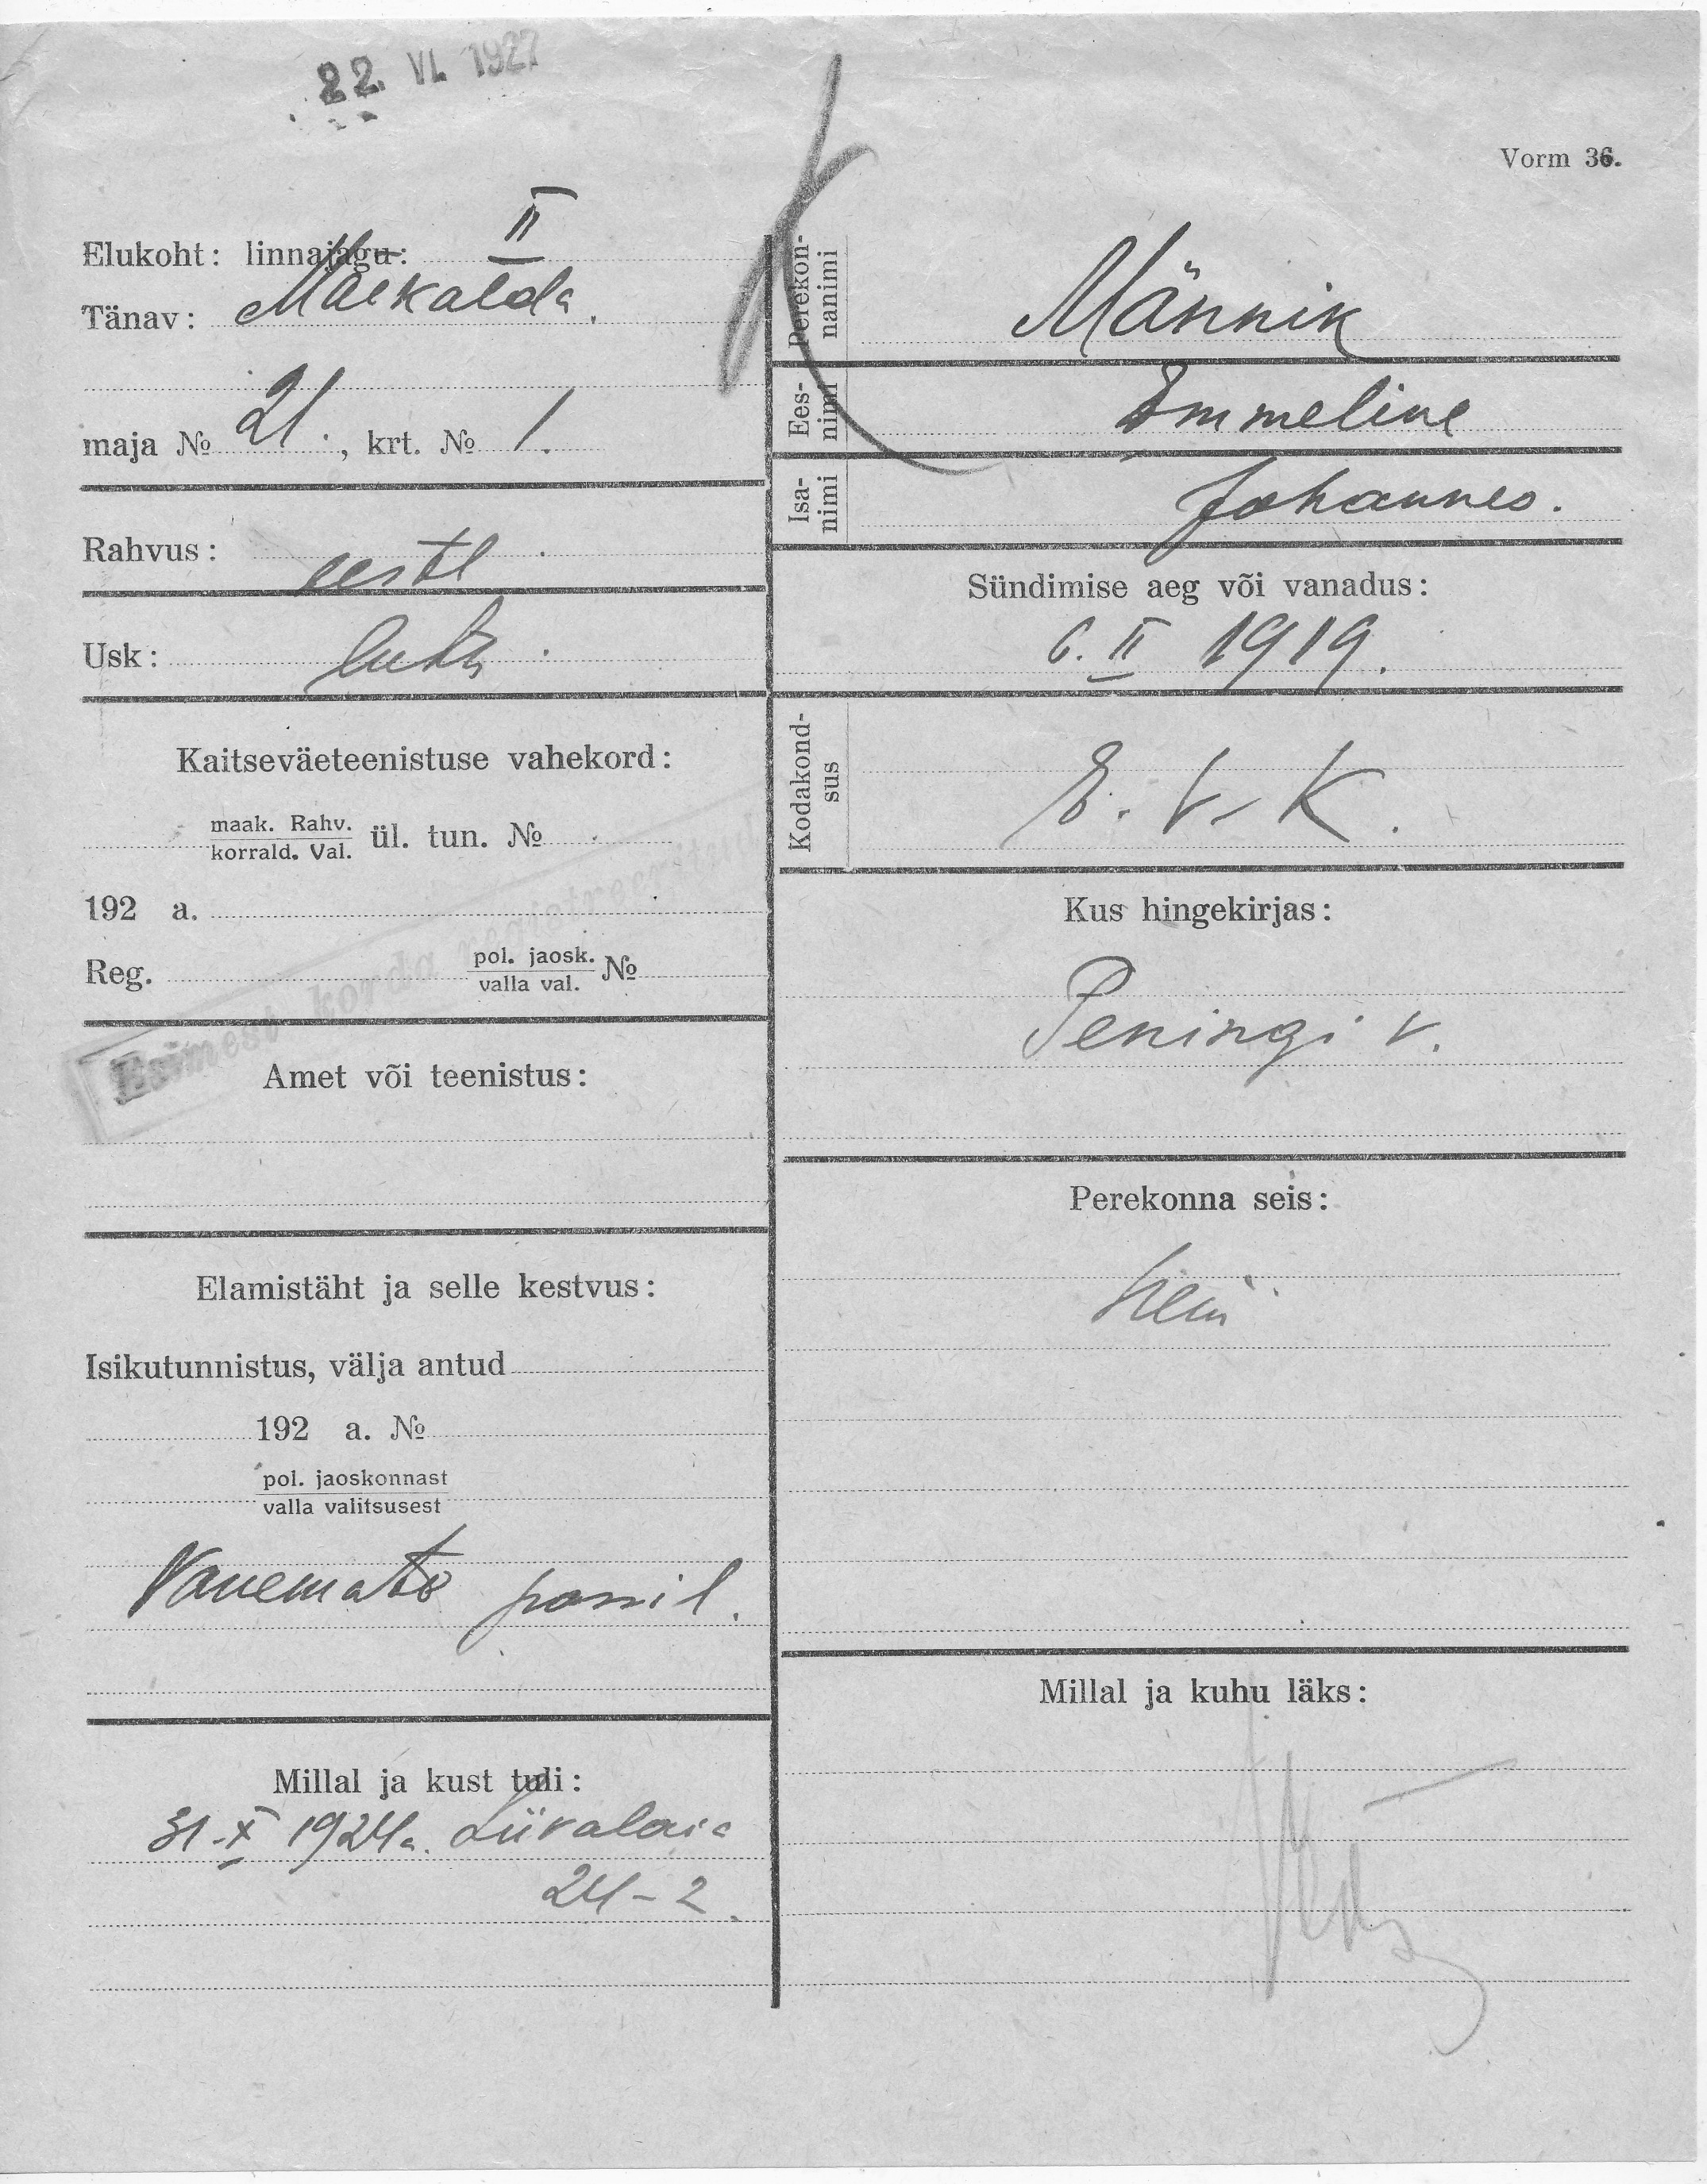 22. VI. 1927
Vorm 36.
Elukoht: linnajagu: II
Tänav: Maekalda.
maja № 21., krt. № 1.
Rahvus: eestl.
Usk: luth.
Kaitseväeteenistuse vahekord:
maak. Rahv.
korrald. Val. ül. tun. №
192 a.
Reg. pol. jaosk.
valla val. №
Esimest korda registreeritud
Amet või teenistus:
Elamistäht ja selle kestvus:
Isikutunnistus, välja antud
192 a. №
pol. jaoskonnast
valla valitsusest
Vanemate passil.
Millal ja kust tuli:
31.X 1924a. Liivalaia
24-2.
Perekon-
nanimi Männik
Ees-
nimi Emmeline
Isa-
nimi Johannes.
Sündimise aeg või vanadus:
6. II 1919.
Kodakond-
sus E. V. K.
Kus hingekirjas:
Peningi v.
Perekonna seis:
Millal ja kuhu läks: